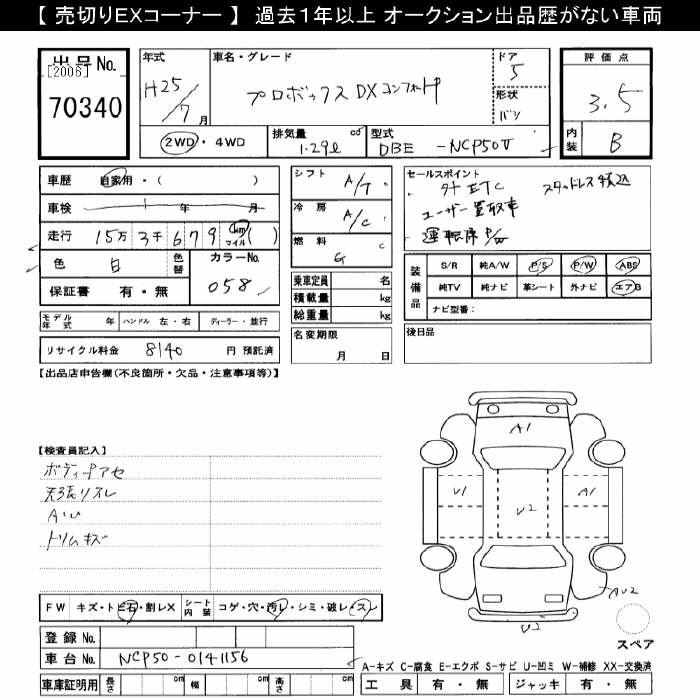 【 売切りEXコーナー 】 過去１年以上 オークション出品歴がない車両
出品No.
[2006]
70340
年式
H25/7月
車名・グレード
プロボックス DX コンフォートP
ドア
5
形状
バン
評価点
3.5
内装
B
2WD・4WD
排気量
1.29ℓ
cc
型式
DBE -NCP50V
車歴 自家用・( )
車検 年 月
走行 15万3千679 km マイル ( )
色 白 色替 カラーNo. 058
保証書 有・無
モデル年式 年 ハンドル 左・右 ディーラー・並行
リサイクル料金 8140 円 預託済
シフト
A/T
冷房
A/C
燃料
G
乗車定員 名
積載量 kg
総重量 kg
名変期限
月 日
セールスポイント
外 ETC スタッドレス積込
ユーザー買取車
運転席P/W
装備品
S/R 純A/W P/S P/W ABS
純TV 純ナビ 革シート 外ナビ エアB
ナビ型番：
後日品
【出品店申告欄(不良箇所・欠品・注意事項等)】
【検査員記入】
ボディーアセ
天張リスレ
AU
トリムキズ
A1
U1
U2
A1
AU2
U2
スペア
FW キズ・トビ石・割レX シート内装 コゲ・穴・汚レ・シミ・破レ・スレ
登録No.
車台No. NCP50-0141156
車庫証明用 長さ cm 幅 cm 高さ cm
A-キズ C-腐食 E-エクボ S-サビ U-凹ミ W-補修 XX-交換済
工具 有・無 ジャッキ 有・無